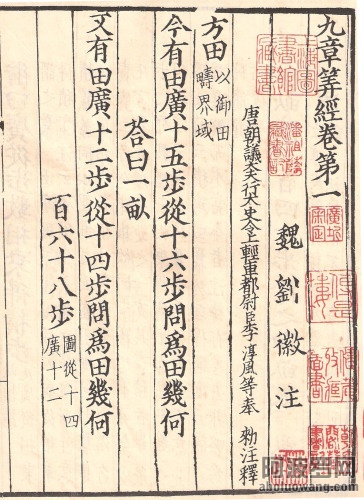 九章筭經卷第一
魏劉徽注
唐朝議大夫行太史令上輕車都尉臣李淳風等奉 勑注釋
方田 以御田疇界域
今有田廣十五步從十六步問爲田幾何
荅曰一畝
又有田廣十二步從十四步問爲田幾何
百六十八步 圖從十四廣十二
阿波罗网
aboluowang.com